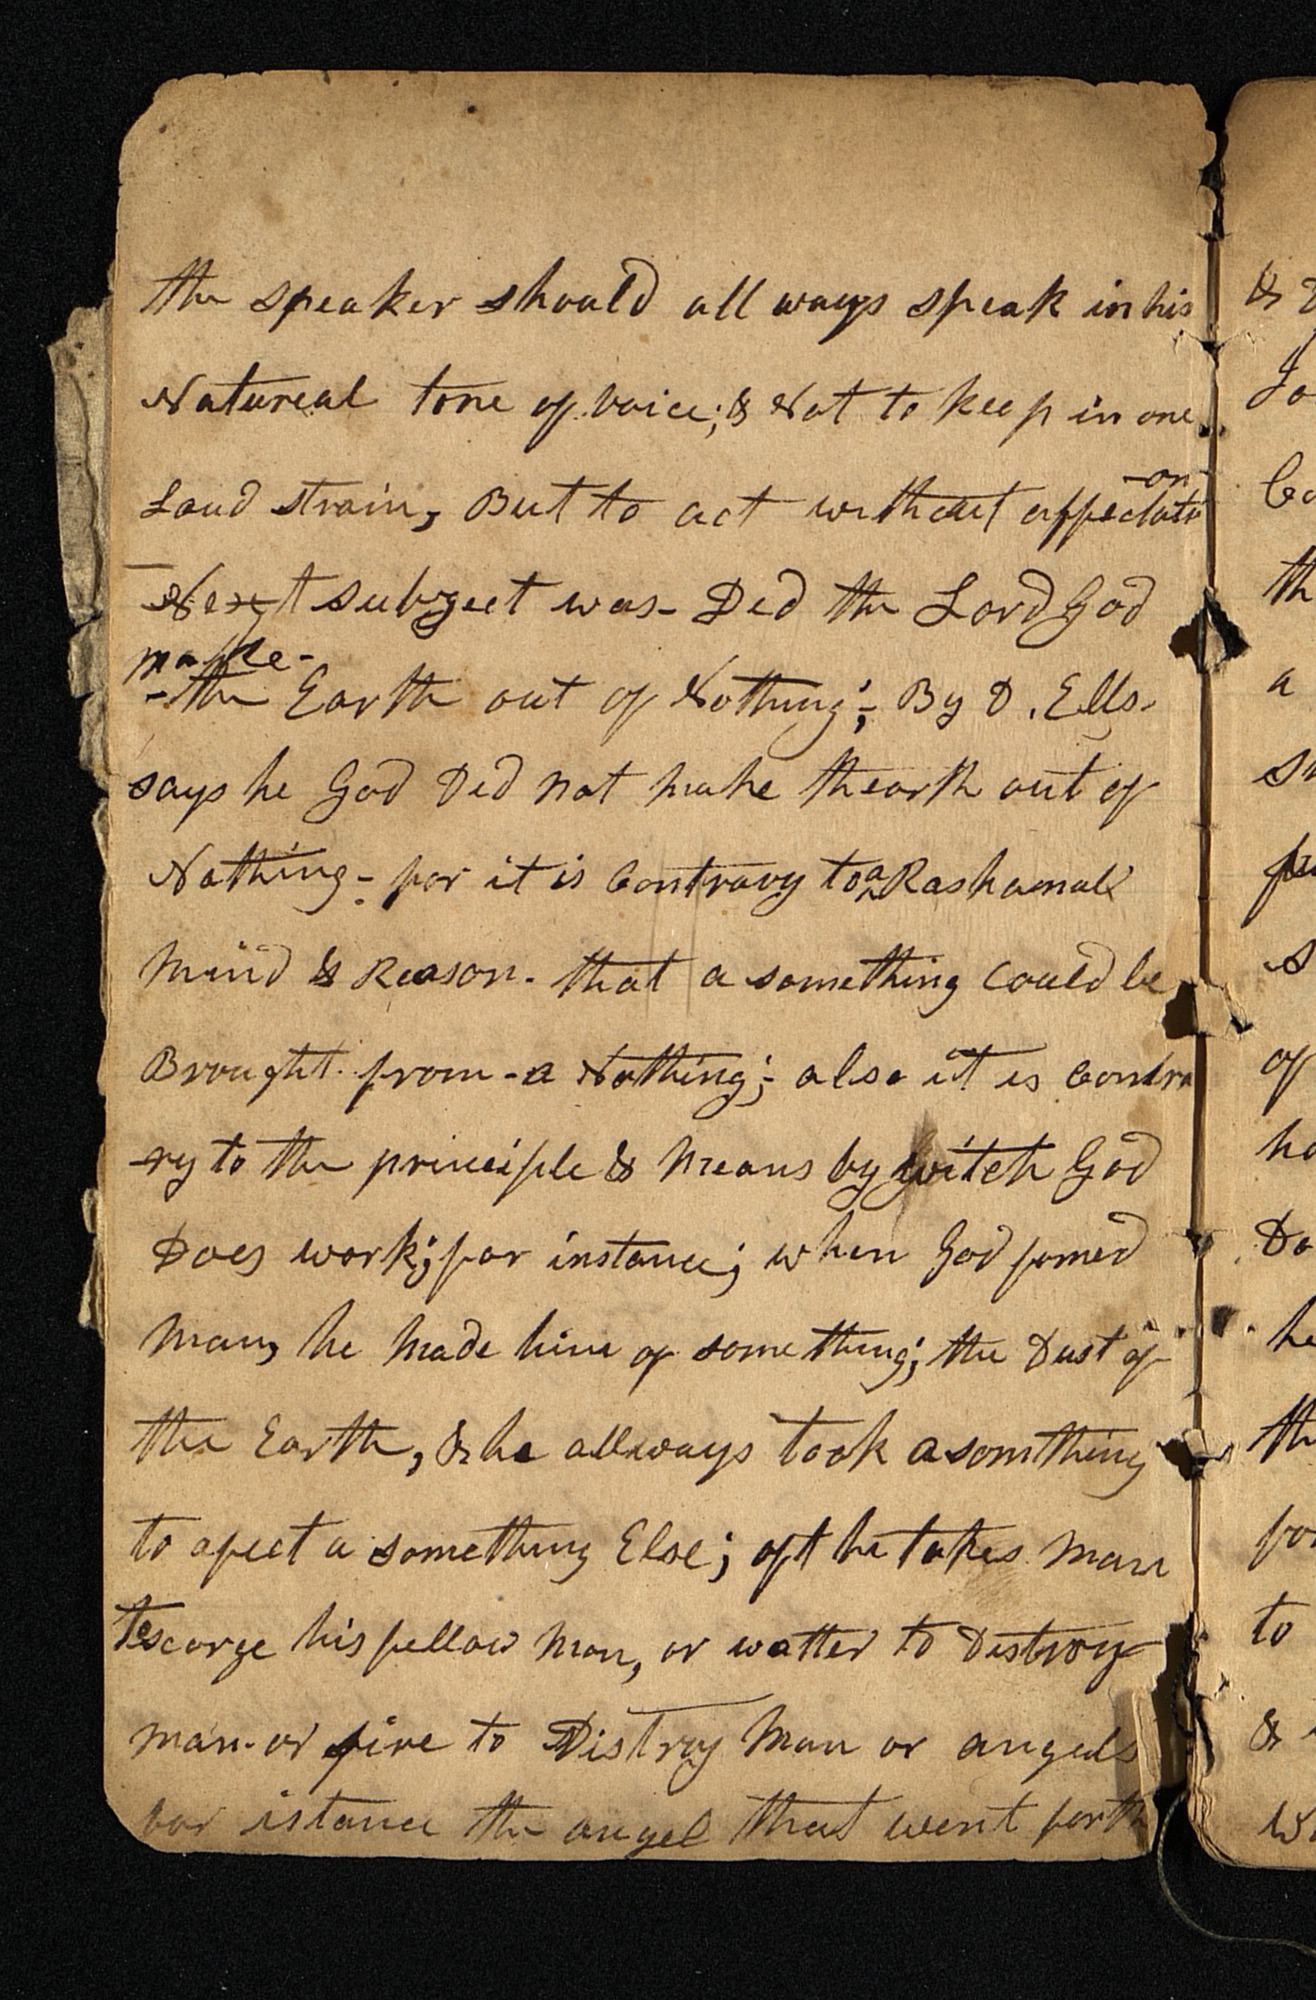 the speaker should all ways speak in his
Natureal tone of voice; & Not to keep in one
Loud strain, But to act without affectati
-on
Next subject was - Ded the Lord God
make-
-the Earth out of Nothing; By D. Ells-
says he God Ded not make thearth out of
Nothing - for it is Contravy to a Rashanall
mind & Reason - that a something could be
Brought from - a Nothing; also it is Contra
-ry to the principle & means by witch God
Does work; for instance; when God fomed
man, he made him of something; the Dust of
the Earth, & he allways took a somthing
to afect a something Else; oft he takes man
to scorge his fellow man, or watter to Destroy
man - or fire to Distroy man or angels
for istance the angel that went forth